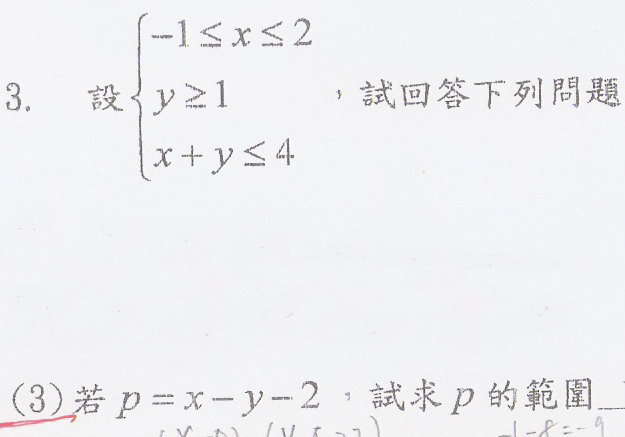 3. 設 { -1≤x≤2
y≥1
x+y≤4 ,試回答下列問題
(3)若 p=x-y-2,試求 p 的範圍